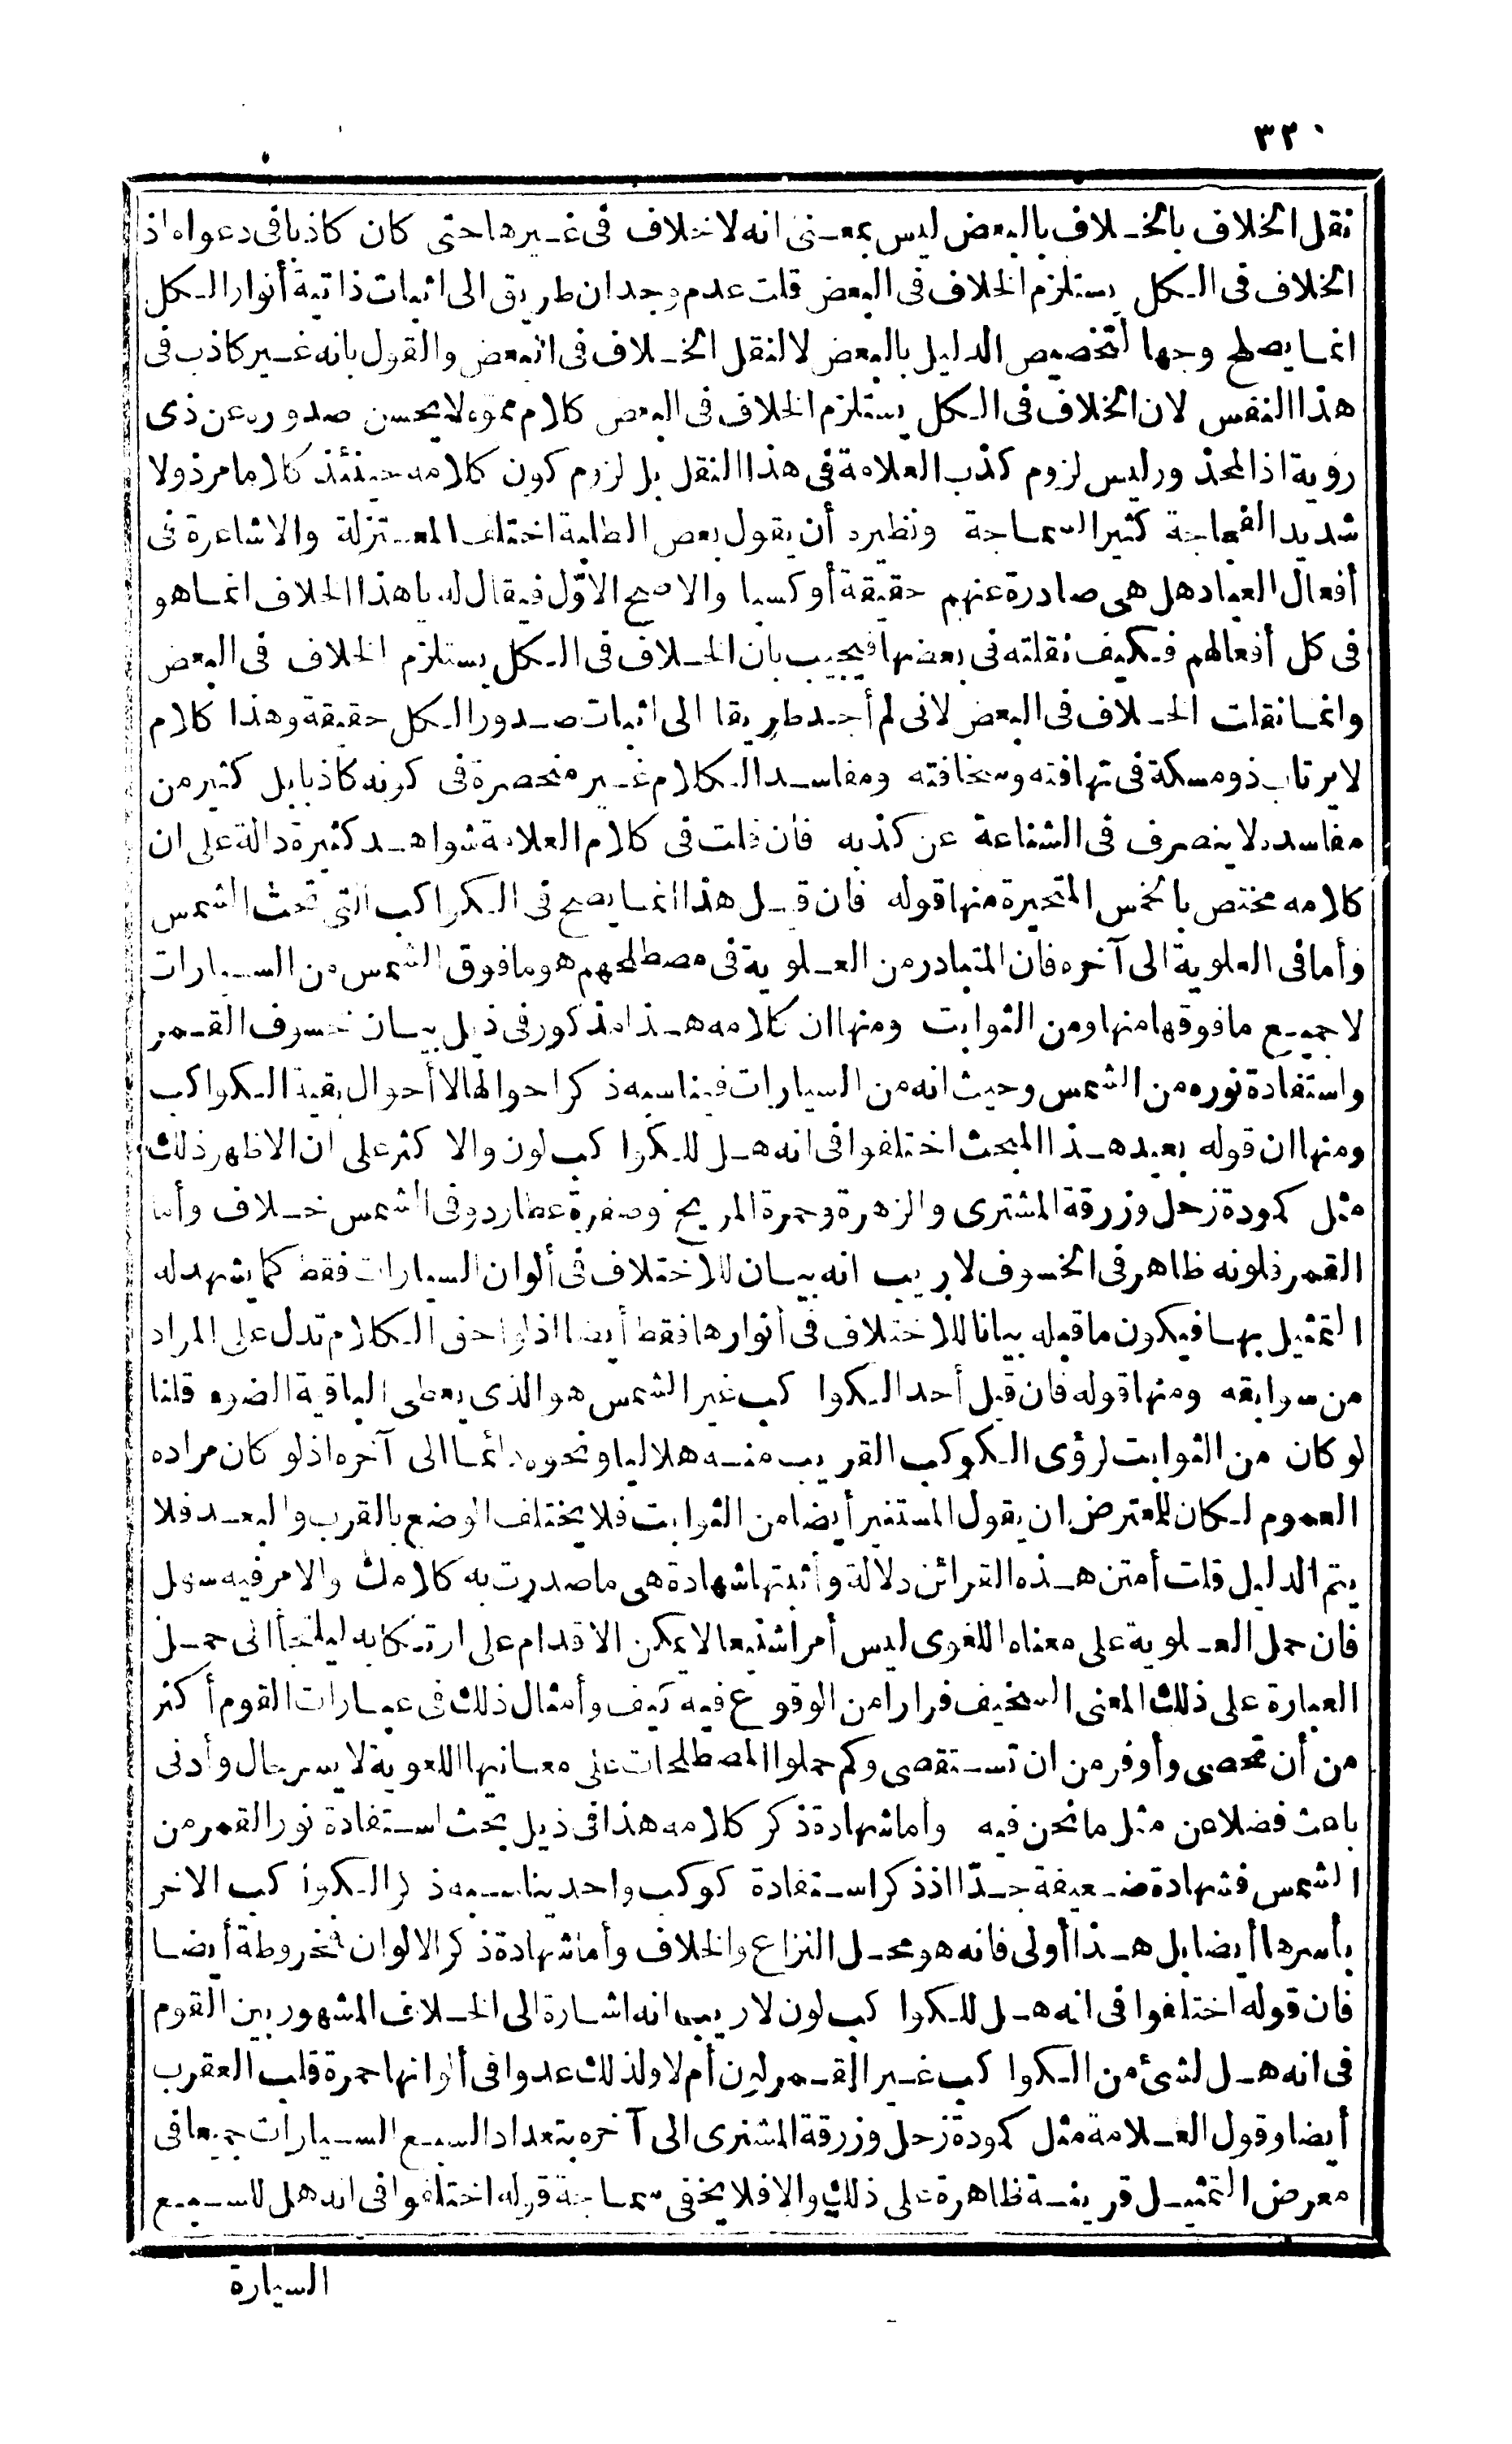 ٣٢٠
نقل الخلاف بالخلاف بالبعض ليس بمعنى انه لا خلاف فى غيرها حتى كان كاذبا فى دعواه اذ
الخلاف فى الكل يستلزم الخلاف فى البعض قلت عدم وجدان طريق الى اثبات ذاتية أنوار الكل
انما يصلح وجها لتخصيص الدليل بالبعض لا لنقل الخلاف فى البعض والقول بانه غير كاذب فى
هذا النفس لان الخلاف فى الكل يستلزم الخلاف فى البعض كلام مموه لا يحسن صدوره عن ذى
روية اذ المحذور ليس لزوم كذب العلامة فى هذا النقل بل لزوم كون كلامه حينئذ كلاما مرذولا
شديد الفجاجة كثير السماجة ونظيره أن يقول بعض الطلبة اختلف المعتزلة والاشاعرة فى
أفعال العباد هل هى صادرة عنهم حقيقة أو كسبا والاصح الاوّل فيقال له يا هذا الخلاف انما هو
فى كل أفعالهم فكيف نقلته فى بعضها فيجيب بان الخلاف فى الكل يستلزم الخلاف فى البعض
وانما نقلت الخلاف فى البعض لانى لم أجد طريقا الى اثبات صدور الكل حقيقة وهذا كلام
لا يرتاب ذو مسكة فى تهافته وسخافته ومفاسد الكلام غير منحصرة فى كونه كاذبا بل كثير من
مفاسده لا ينصرف فى الشناعة عن كذبه فان قلت فى كلام العلامة شواهد كثيرة دالة على ان
كلامه مختص بالخمس المتحيرة منها قوله فان قيل هذا انما يصح فى الكواكب التى تحت الشمس
وأما فى العلوية الى آخره فان المتبادر من العلوية فى مصطلحهم هو ما فوق الشمس من السيارات
لا جميع ما فوقها منها ومن الثوابت ومنها ان كلامه هذا مذكور فى ذيل بيان خسوف القمر
واستفادة نوره من الشمس وحيث انه من السيارات فيناسبه ذكر احوالها لا أحوال بقية الكواكب
ومنها ان قوله بعيد هذا المبحث اختلفوا فى انه هل للكواكب لون والاكثر على ان الاظهر ذلك
مثل كمودة زحل وزرقة المشترى والزهرة وحمرة المريخ وصفرة عطارد وفى الشمس خلاف وأما
القمر فلونه ظاهر فى الخسوف لا ريب انه بيان للاختلاف فى ألوان السيارات فقط كما يشهد له
التمثيل بها فيكون ما قبله بيانا للاختلاف فى أنوارها فقط أيضا اذ لواحق الكلام تدل على المراد
من سوابقه ومنها قوله فان قيل أحد الكواكب غير الشمس هو الذى يعطى الباقية الضوء قلنا
لو كان من الثوابت لرؤى الكوكب القريب منه هلاليا ونحوه دائما الى آخره اذ لو كان مراده
العموم لكان للمعترض ان يقول المستنير أيضا من الثوابت فلا يختلف الوضع بالقرب والبعد فلا
يتم الدليل قلت أمتن هذه القرائن دلالة وأثبتها شهادة هى ما صدرت به كلامك والامر فيه سهل
فان حمل العلوية على معناه اللغوى ليس أمرا شنيعا لا يمكن الاقدام على ارتكابه ليلتجأ الى حمل
العبارة على ذلك المعنى السخيف فرارا من الوقوع فيه كيف وأمثال ذلك فى عبارات القوم أكثر
من أن تحصى وأوفر من ان تستقصى وكم حملوا المصطلحات على معانيها اللغوية لايسر حال وأدنى
باعث فضلا عن مثل ما نحن فيه وأما شهادة ذكر كلامه هذا فى ذيل بحث استفادة نور القمر من
الشمس فشهادة ضعيفة جدّا اذ ذكر استفادة كوكب واحد يناسبه ذكر الكواكب الاخر
بأسرها أيضا بل هذا أولى فانه هو محل النزاع والخلاف وأما شهادة ذكر الالوان فمخروطة أيضا
فان قوله اختلفوا فى انه هل للكواكب لون لا ريب انه اشارة الى الخلاف المشهور بين القوم
فى انه هل لشئ من الكواكب غير القمر لون أم لا ولذلك عدوا فى ألوانها حمرة قلب العقرب
أيضا وقول العلامة مثل كمودة زحل وزرقة المشترى الى آخره بتعداد السبع السيارات جميعا فى
معرض التمثيل قرينة ظاهرة على ذلك والا فلا يخفى سماجة قوله اختلفوا فى انه هل للسبع
السيارة